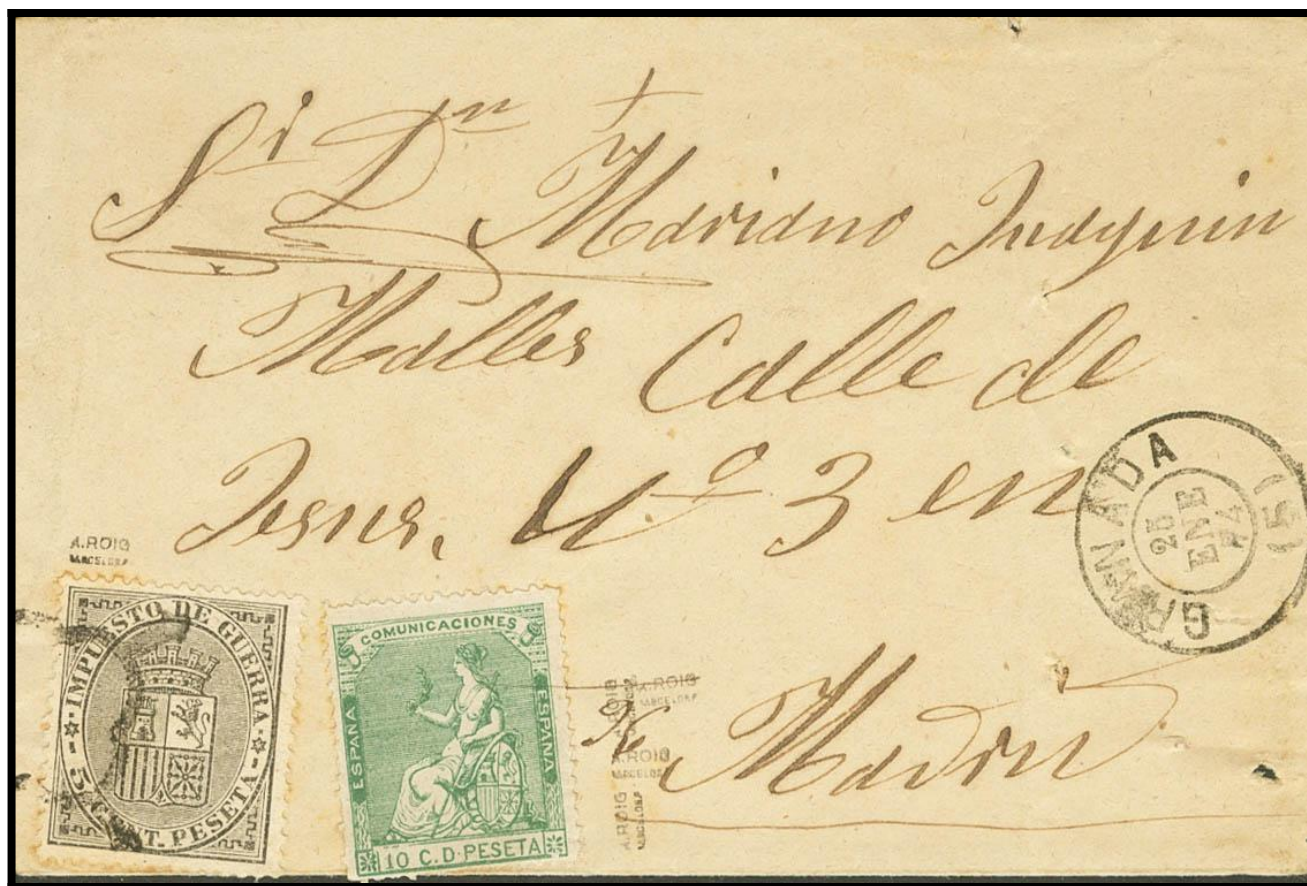 Sr Dn Mariano Juaquin
Malles Calle de
Jesus. No 3 en
Madrid
GRANADA
25
ENE
74
(5)
A.ROIG
BARCELONA
IMPUESTO DE GUERRA
5 CENT. PESETA
COMUNICACIONES
ESPAÑA
ESPAÑA
10 C. D PESETA
A.ROIG
BARCELONA
A.ROIG
BARCELONA
A.ROIG
BARCELONA
A.ROIG
BARCELONA